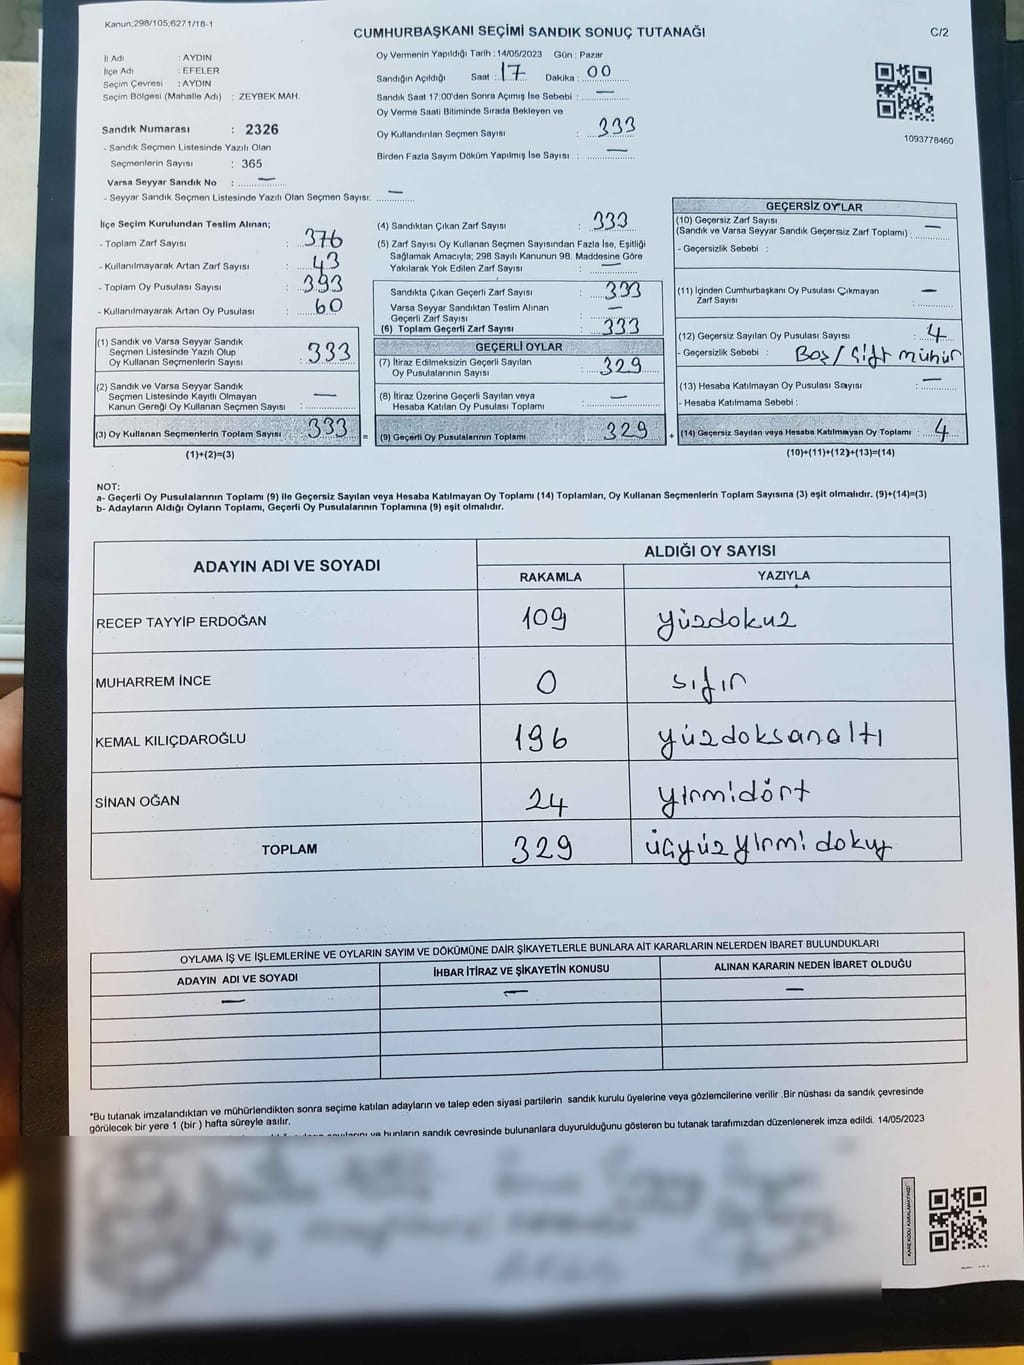 Kanun,298/105,6271/18-1
CUMHURBAŞKANI SEÇİMİ SANDIK SONUÇ TUTANAĞI
C/2
İl Adı : AYDIN
İlçe Adı : EFELER
Seçim Çevresi : AYDIN
Seçim Bölgesi (Mahalle Adı) : ZEYBEK MAH.
Sandık Numarası : 2326
- Sandık Seçmen Listesinde Yazılı Olan
Seçmenlerin Sayısı : 365
Varsa Seyyar Sandık No : —
- Seyyar Sandık Seçmen Listesinde Yazılı Olan Seçmen Sayısı: —
Oy Vermenin Yapıldığı Tarih : 14/05/2023 Gün : Pazar
Sandığın Açıldığı Saat : 17 Dakika : 00
Sandık Saat 17:00'den Sonra Açımış İse Sebebi : —
Oy Verme Saati Bitiminde Sırada Bekleyen ve
Oy Kullandırılan Seçmen Sayısı : 333
Birden Fazla Sayım Döküm Yapılmış İse Sayısı : —
1093778460
İlçe Seçim Kurulundan Teslim Alınan;
- Toplam Zarf Sayısı : 376
- Kullanılmayarak Artan Zarf Sayısı : 43
- Toplam Oy Pusulası Sayısı : 393
- Kullanılmayarak Artan Oy Pusulası : 60
(1) Sandık ve Varsa Seyyar Sandık
Seçmen Listesinde Yazılı Olup
Oy Kullanan Seçmenlerin Sayısı : 333
(2) Sandık ve Varsa Seyyar Sandık
Seçmen Listesinde Kayıtlı Olmayan
Kanun Gereği Oy Kullanan Seçmen Sayısı : —
(3) Oy Kullanan Seçmenlerin Toplam Sayısı : 333
(1)+(2)=(3)
=
(4) Sandıktan Çıkan Zarf Sayısı : 333
(5) Zarf Sayısı Oy Kullanan Seçmen Sayısından Fazla İse, Eşitliği
Sağlamak Amacıyla; 298 Sayılı Kanunun 98. Maddesine Göre
Yakılarak Yok Edilen Zarf Sayısı : —
Sandıkta Çıkan Geçerli Zarf Sayısı : 333
Varsa Seyyar Sandıktan Teslim Alınan
Geçerli Zarf Sayısı : —
(6) Toplam Geçerli Zarf Sayısı : 333
GEÇERLİ OYLAR
(7) İtiraz Edilmeksizin Geçerli Sayılan
Oy Pusulalarının Sayısı : 329
(8) İtiraz Üzerine Geçerli Sayılan veya
Hesaba Katılan Oy Pusulası Toplamı : —
(9) Geçerli Oy Pusulalarının Toplamı : 329
+
GEÇERSİZ OYLAR
(10) Geçersiz Zarf Sayısı
(Sandık ve Varsa Seyyar Sandık Geçersiz Zarf Toplamı) : —
- Geçersizlik Sebebi :
(11) İçinden Cumhurbaşkanı Oy Pusulası Çıkmayan
Zarf Sayısı : —
(12) Geçersiz Sayılan Oy Pusulası Sayısı : 4
- Geçersizlik Sebebi : Boş / Çift mühür
(13) Hesaba Katılmayan Oy Pusulası Sayısı : —
- Hesaba Katılmama Sebebi :
(14) Geçersiz Sayılan veya Hesaba Katılmayan Oy Toplamı : 4
(10)+(11)+(12)+(13)=(14)
NOT:
a- Geçerli Oy Pusulalarının Toplamı (9) ile Geçersiz Sayılan veya Hesaba Katılmayan Oy Toplamı (14) Toplamları, Oy Kullanan Seçmenlerin Toplam Sayısına (3) eşit olmalıdır. (9)+(14)=(3)
b- Adayların Aldığı Oyların Toplamı, Geçerli Oy Pusulalarının Toplamına (9) eşit olmalıdır.
ADAYIN ADI VE SOYADI
ALDIĞI OY SAYISI
RAKAMLA YAZIYLA
RECEP TAYYİP ERDOĞAN 109 yüzdokuz
MUHARREM İNCE 0 sıfır
KEMAL KILIÇDAROĞLU 196 yüzdoksanaltı
SİNAN OĞAN 24 yirmidört
TOPLAM 329 üçyüzyirmi dokuz
OYLAMA İŞ VE İŞLEMLERİNE VE OYLARIN SAYIM VE DÖKÜMÜNE DAİR ŞİKAYETLERLE BUNLARA AİT KARARLARIN NELERDEN İBARET BULUNDUKLARI
ADAYIN ADI VE SOYADI İHBAR İTİRAZ VE ŞİKAYETİN KONUSU ALINAN KARARIN NEDEN İBARET OLDUĞU
— — —
*Bu tutanak imzalandıktan ve mühürlendikten sonra seçime katılan adayların ve talep eden siyasi partilerin sandık kurulu üyelerine veya gözlemcilerine verilir .Bir nüshası da sandık çevresinde
görülecek bir yere 1 (bir ) hafta süreyle asılır.
ve bunların sandık çevresinde bulunanlara duyurulduğunu gösteren bu tutanak tarafımızdan düzenlenerek imza edildi. 14/05/2023
KARE KODU KARALAMAYINIZ!